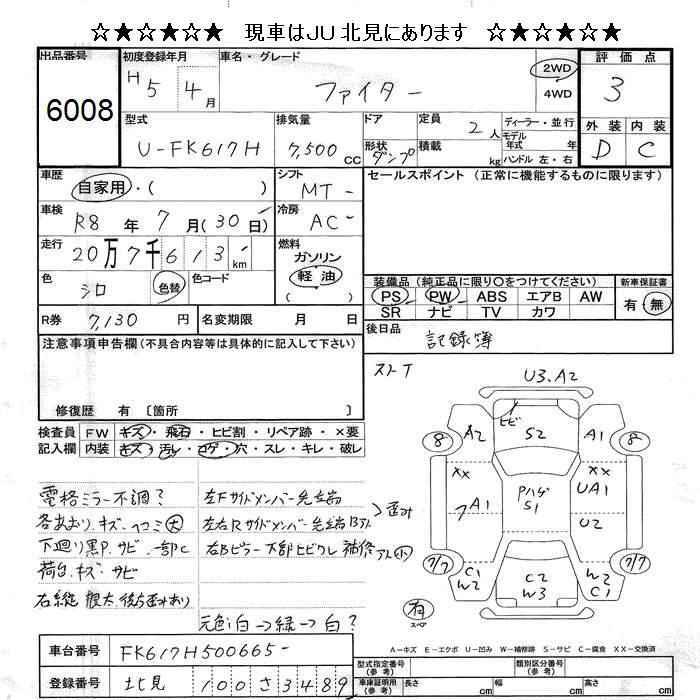 ☆★☆★☆ 現車はJU北見にあります ☆★☆★☆
出品番号
6008
初度登録年月
H5 4月
車名・グレード
ファイター
2WD
4WD
評価点
3
外装 内装
D C
型式
U-FK617H
排気量
7,500 cc
ドア
形状
ダンプ
定員
2人
積載
kg
ディーラー・並行
モデル年式 年
ハンドル 左・右
車歴
自家用・( )
シフト
MT -
セールスポイント (正常に機能するものに限ります)
車検
R8年 7月(30日)
冷房
AC -
走行
20万7千613km
燃料
ガソリン
軽油
( )
色
シロ
色替
色コード
装備品(純正品に限り○をつけてください)
PS PW ABS エアB AW
SR ナビ TV カワ
新車保証書
有・無
R券 7,130円
名変期限 月 日
後日品
記録簿
注意事項申告欄(不具合内容等は具体的に記入して下さい)
修復歴 有 〔箇所 〕
検査員記入欄
FW キズ・飛石・ヒビ割・リペア跡・×要
内装 キズ・汚レ・コゲ・穴・スレ・キレ・破レ
電格ミラー不調?
各あおり、キズ、ヘコミ大
下廻り黒P、サビ、一部C
荷台、キズ、サビ
左Fサイドメンバー先端
左右Rサイドメンバー先端
歪み
元色:白→緑→白?
U3.A2
ヒビ
S2
A2
A1
8
8
XX
XX
A1
UA1
U2
Pハゲ
S1
7/7
7/7
C1
W2
C2
W3
W2
C1
有
スペア
A-キズ E-エクボ U-凹み W-補修跡 S-サビ C-腐食 XX-交換済
車台番号 FK617H500665-
登録番号 北見 100さ3489
型式指定番号(参考)
類別区分番号(参考)
車庫証明用(参考)
長さ cm
幅 cm
高さ cm